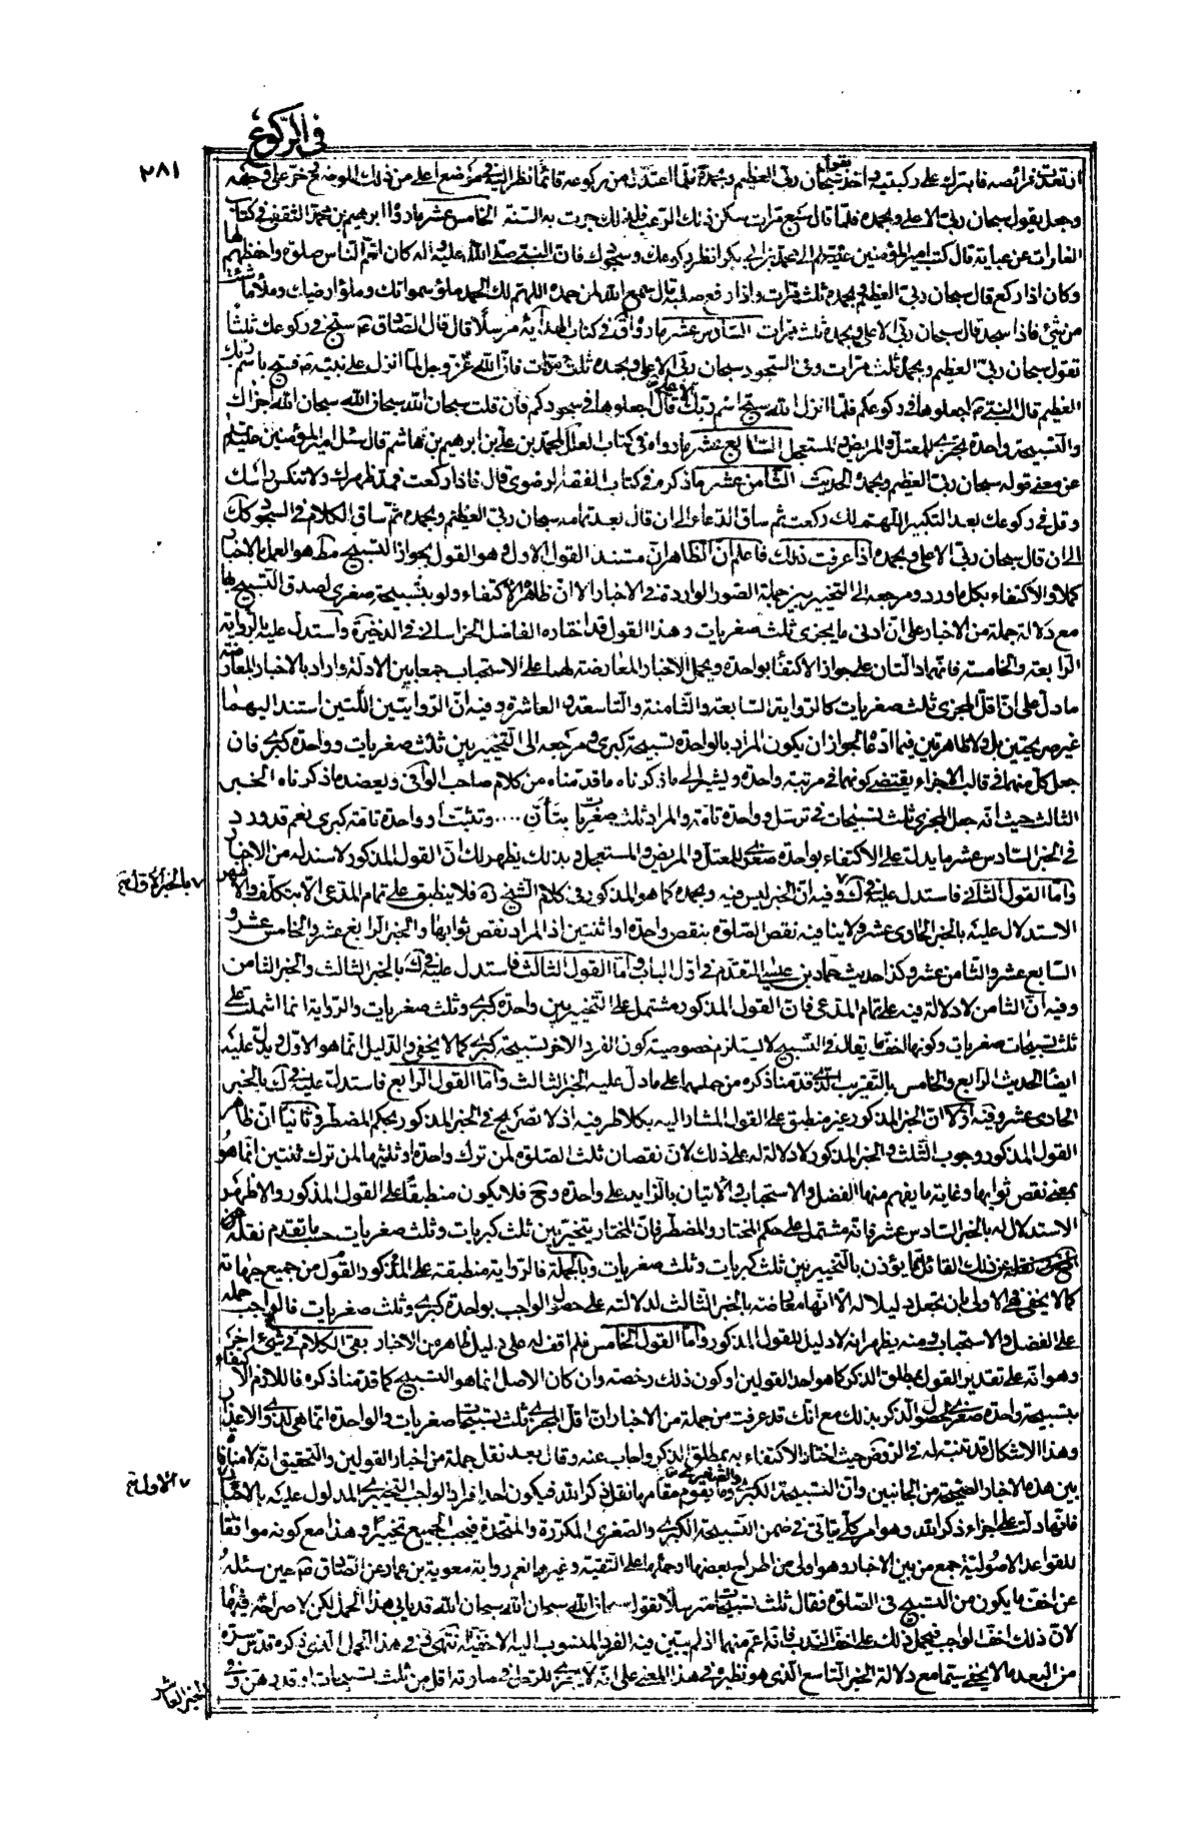 في الركوع
٢٨١
ارتعدت فرائصه فابترك على ركبتيه واخذ يقول سبحان ربي العظيم وبحمده فلما اعتدل من ركوعه قائما نظر اليه في موضع اعلى من ذلك الموضع خر على وجهه
وجعل يقول سبحان ربي الاعلى وبحمده فلما قال سبع مرات سكن ذلك الرعب فلذلك جرت به السنة الخامس عشر ما رواه ابراهيم بن محمد الثقفي في كتاب
الغارات عن عباية قال كتب امير المؤمنين عليه السلم الى محمد بن ابي بكر انظر ركوعك وسجودك فان النبي صلى الله عليه واله كان اتم الناس صلوة واحفظهم لها
وكان اذا ركع قال سبحان ربي العظيم وبحمده ثلث مرات واذا رفع صلبه قال سمع الله لمن حمده اللهم لك الحمد ملؤ سمواتك وملؤ ارضيك وملؤ ما شئت
من شيء فاذا سجد قال سبحان ربي الاعلى وبحمده ثلث مرات السادس عشر ما رواه في كتاب الهداية مرسلا قال قال الصادق ع سبح في ركوعك ثلثا
تقول سبحان ربي العظيم وبحمده ثلث مرات وفي السجود سبحان ربي الاعلى وبحمده ثلث مرات فان الله عز وجل لما انزل على نبيه ص فسبح باسم ربك
العظيم قال النبي ص اجعلوها في ركوعكم فلما انزل الله سبح اسم ربك الاعلى قال اجعلوها في سجودكم فان قلت سبحان الله سبحان الله سبحان الله اجزاك
والتسبيحة واحدة تجزي للمعتل والمريض والمستعجل السابع عشر ما رواه في كتاب العلل لمحمد بن علي بن ابرهيم بن هاشم قال سئل امير المؤمنين عليه السلم
عن معنى قوله سبحان ربي العظيم وبحمده الحديث الثامن عشر ما ذكره في كتاب الفقه الرضوي قال فاذا ركعت فمد ظهرك ولا تنكس راسك
وقل في ركوعك بعد التكبير اللهم لك ركعت ثم ساق الدعاء الى ان قال بعد تمامه سبحان ربي العظيم وبحمده ثم ساق الكلام في السجود كك
الى ان قال سبحان ربي الاعلى وبحمده اذا عرفت ذلك فاعلم ان الظاهر ان مستند القول الاول وهو القول بجواز التسبيح مط هو العمل بالاخبار
كملا والاكتفاء بكل ما ورد ومرجعه الى التخيير بين جملة الصور الواردة في الاخبار الا ان ظاهره الاكتفاء ولو بتسبيحة صغرى لصدق التسبيح بها
مع دلالة جملة من الاخبار على ان ادنى ما يجزى ثلث صغريات وهذا القول قد اختاره الفاضل الخراساني في الذخيرة واستدل عليه بالرواية
الرابعة والخامسة فانهما دالتان على جواز الاكتفاء بواحدة وبحمل الاخبار المعارضة لهما على الاستحباب جمعا بين الادلة واراد بالاخبار المعارضة
ما دل على ان اقل المجزى ثلث صغريات كالرواية السابعة والثامنة والتاسعة والعاشرة وفيه ان الروايتين اللتين استند اليهما
غير صريحتين بل ولا ظاهرتين فيما ادعاه لجواز ان يكون المراد بالواحدة تسبيحة كبرى ومرجعه الى التخيير بين ثلث صغريات وواحدة كبرى فان
جعل كل منهما في قالب الاجزاء يقتضي كونهما في مرتبة واحدة ويشير الى ما ذكرناه ما قدمناه من كلام صاحب الوافي ويعضده ما ذكرناه الخبر
الثالث حيث انه جعل المجزي ثلث تسبيحات في ترسل وواحدة تامة والمراد ثلث صغريات بتأن .... وتثبت او واحدة تامة كبرى نعم قد ورد
في الخبر السادس عشر ما يدل على الاكتفاء بواحدة صغرى للمعتل والمريض والمستعجل وبذلك يظهر لك ان القول المذكور لا سند له من الاخبار
واما القول الثاني فاستدل عليه في ك وفيه ان الخبر ليس فيه وبحمده كما هو المذكور في كلام الشيخ ره فلا ينطبق على تمام المدعى الا بتكلف والاظهر
٧ بالخبر الاول صح
الاستدلال عليه بالخبر الحادى عشر ولا ينافيه نقص الصلوة بنقص واحدة او اثنتين اذ المراد نقص ثوابها والخبر الرابع عشر والخامس عشر و
السابع عشر والثامن عشر وكذا حديث حماد بن عيسى المتقدم في اول الباب واما القول الثالث فاستدل عليه في ك بالخبر الثالث والخبر الثامن
وفيه ان الثامن لا دلالة فيه على تمام المدعى فان القول المذكور مشتمل على التخيير بين واحدة كبرى وثلث صغريات والرواية انما اشتملت على
ثلث تسبيحات صغريات وكونها اخف ما يقال في التسبيح لا يستلزم خصوصية كون الفرد الاخر تسبيحة كبرى كما لا يخفى والدليل انما هو الاول ويدل عليه
ايضا الحديث الرابع والخامس بالتقريب الذي قدمنا ذكره من حملهما على ما دل عليه الخبر الثالث واما القول الرابع فاستدل عليه في ك بالخبر
الحادى عشر وفيه اولا ان الخبر المذكور غير منطبق على القول المشار اليه بكلا طرفيه اذ لا تصريح في الخبر المذكور بحكم المضطر وثانيا ان ظاهر
القول المذكور وجوب الثلث والخبر المذكور لا دلالة له على ذلك لان نقصان ثلث الصلوة لمن ترك واحدة او ثلثيها لمن ترك ثنتين انما هو
بمعنى نقص ثوابها وغاية ما يفهم منها الفضل والاستحباب في الاتيان بالزايد على واحدة وح فلا يكون منطبقا على القول المذكور والاظهر
الاستدلال له بالخبر السادس عشر فانه مشتمل على حكم المختار والمضطر فان المختار يتخير بين ثلث كبريات وثلث صغريات حسب ما تقدم نقله من
نقله عن ذلك القائل مما يؤذن بالتخيير بين ثلث كبريات وثلث صغريات وبالجملة فالرواية منطبقة على المذكور القول من جميع جهاته
كما لا يخفى فهي الاولى بان تجعل دليلا له الا انها معارضة بالخبر الثالث لدلالته على حصول الواجب بواحدة كبرى وثلث صغريات فالواجب حمله
على الفضل والاستحباب ومنه يظهر انه لا دليل للقول المذكور واما القول الخامس فلم اقف له على دليل ظاهر من الاخبار بقى الكلام في شيء اخر
وهو انه على تقدير القول بمطلق الذكر كما هو احد القولين او كون ذلك رخصة وان كان الاصل انما هو التسبيح كما قدمنا ذكره فاللازم الاكتفاء
بتسبيحة واحدة صغرى لحصول الذكر بذلك مع انك قد عرفت من جملة من الاخبار ان اقل المجزي ثلث تسبيحات صغريات والواحدة انما هي لذوي الاعذار
وهذا الاشكال قد تنبه له في الروض حيث اختار الاكتفاء به بمطلق الذكر واجاب عنه وقال بعد نقل جملة من اخبار القولين والتحقيق انه لا منافاة
بين هذه الاخبار الصحيحة من الجانبين وان التسبيحة الكبرى والصغرى وما يقوم مقامها نقل ذكر الله فيكون احد افراد الواجب التخييري المدلول عليه بالاخبار
٧ الاول صح
فانها دلت على اجزاء ذكر الله وهو امر كلي يتاتى في ضمن التسبيحة الكبرى والصغرى المكررة والمتحدة فيجب الجميع تخييرا وهذا مع كونه موافقا
للقواعد الاصولية جمع من بين الاخبار وهو اولى من اطراح بعضها او حملها على التقية وغيرها نعم رواية معوية بن عمار عن الصادق ع حين سئله
عن اخف ما يكون من التسبيح في الصلوة فقال ثلث تسبيحات مترسلا تقول سبحان الله سبحان الله سبحان الله قد يابى هذا الحمل لكن لا صراحة فيها
لان ذلك اخف الواجب فيحمل ذلك على اخف الندب فانه اعم منهما اذ لم يتبين فيه الفرد المنسوب اليه الاخفية انتهى وفي هذا الحمل الذي ذكره قدس سره
من البعد ما لا يخفى سيما مع دلالة الخبر التاسع الذي هو نظيره في هذا المعنى على انه لا يجزي للرجل في صلوته اقل من ثلث تسبيحات او قدرهن وفي
الخبر العاشر